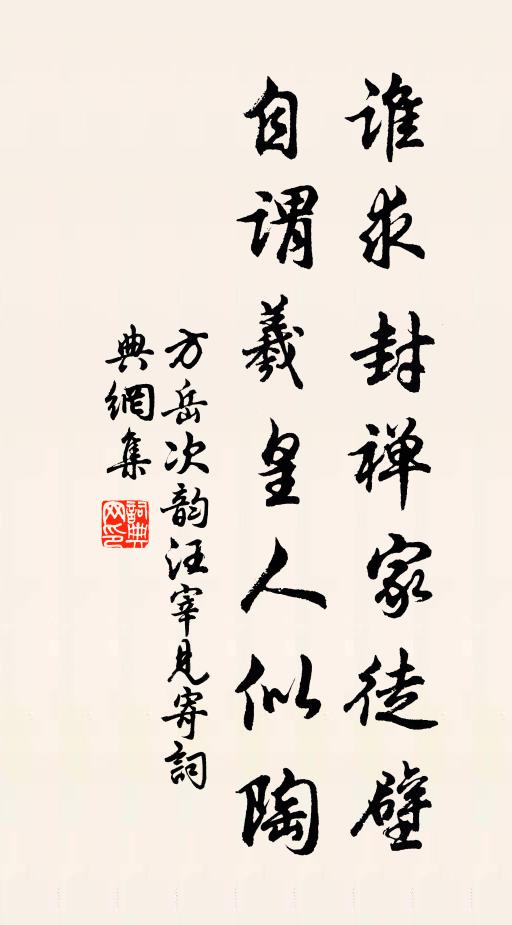 谁求封禅家徒壁
自谓羲皇人似陶
方岳次韵汪宰见寄詞
典網集
詞典网印